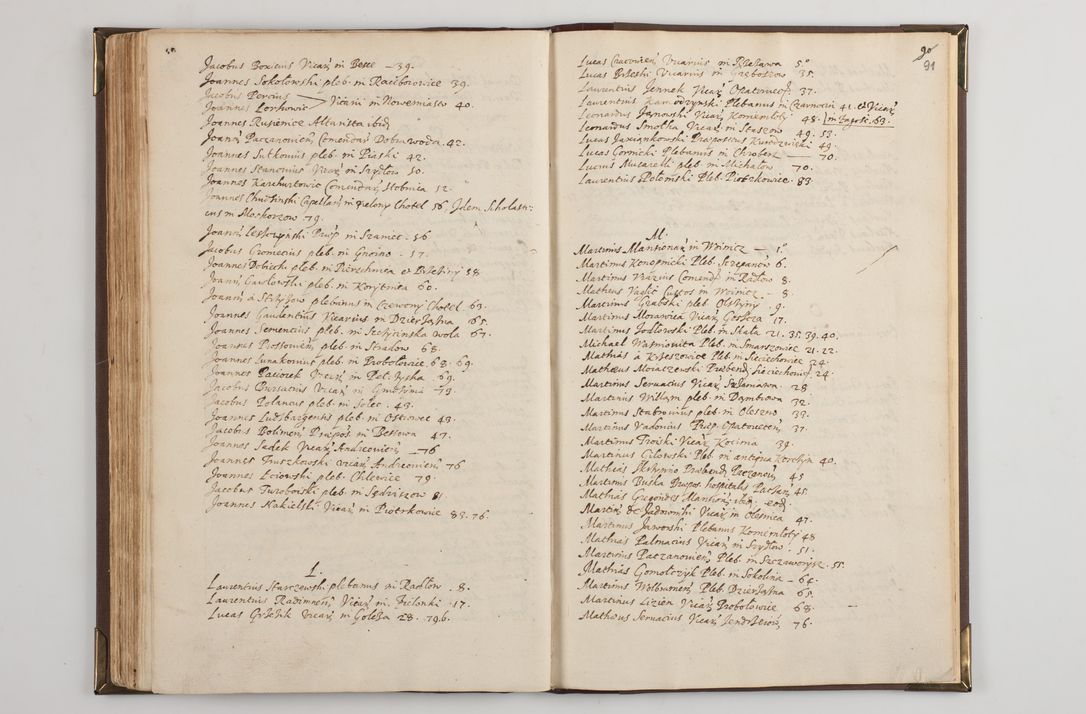 Jacobus Boxicius Vicař in Besce — 39.
Joannes Sokolowski pleb. in Raciborowice 39.
Jacobus Porcius
Joannes Lorhowic Vicarii in Nowemiasto 40.
Joannes Rusienice Altarista ibid
Joanň Paczanowień Comendař Dobrawoda. 42.
Joannes Sutkowius pleb. in Piaski 42.
Joannes Stanowius Vicař in Szydlow 50.
Joannes Karchurtowic Comendař Stobnica 52.
Joannes Chudzinski Capellař in zielony Chotel 56, Idem Scholasti:
cus in Moskorzow 79.
Joanň Leszczynski Præp in Szaniec. 56
Jacobus Cromerius pleb. in Gnoino. 57.
Joannes Dobiech pleb. in Pierzchnica et Brzeziny 58.
Joanň Gawlowski pleb. in Korytnica 60.
Joanň à Stszyzow plebanus in Czerwony Chotel 63.
Joannes Gaudentius Vicarius in Dzierzążna 65.
Joannes Sementius pleb. in Stczycinska wola 67.
Joannes Prossowień pleb. in Stradow 68.
Joannes Lunakowius pleb. in Probolowice 68. 69.
Joannes Paciorek Vicař in Pel: Jzska 69.
Jacobus Bursatius Vicař in 73.
Jacobus Polancus pleb. in Solec. 43.
Joannes Ludzbargensis pleb. in Ostrowce 43.
Jacobus Bolimen Præpos. in Bessowa 47.
Joannes Sadek Vicař Andreowień — 76
Joannes Truszkowski vicař Andreowien 76
Joannes Lciowski pleb. Chlewice 79.
Jacobus Turoborski pleb. in Sędziszow 81.
Joannes Nakielski Vicař in Piotrkowice 83. 76.
L.
Laurentius Starczewski plebanus in Radlow. 8.
Laurentius Radimneň Vicař in Zielonki 17.
Lucas Grzezik Vicař in Goleza 28. 79.b.
90
91
Lucas Cracovień Vicarius in Rzezawa 5.
Lucas Brzeski Vicarius in Gręboszow 35.
Laurentius Jennek Vicař Opatowcoř 37.
Laurentius Kamodzynski Plebanus in Czarnocin 41. et Vicař
Leonardus Janowski Vicař Koniemloty 48. in Zagosc. 63.
Leonardus Smolka Vicař in Staszow 49. 53.
Lucas Jaxiankowski Præpositus Kurozwieki 49.
Lucas Cornicki Plebanus in Chroberz — 70.
Lucius Mucarelli pleb. in Michalow 70.
Laurentius Polomski Pleb. Piotrkowice. 83.
M.
Martinus Mansionař in Woinicz — 1.
Martinus Konopnicki Pleb. Szczepanow 6.
Martinus Vrazius Comendř in Radlow 8.
Matheus Vaglic Custos in Woinicz. 8.
Martinus Grabski pleb. Olszyny 9.
Martinus Morawica Vicař Goszcza 17.
Martinus Jodlowski Pleb. in Skala 21. 35. 39. 40.
Michael Wasniowita Pleb. in Smarszowice 21. 22.
Mathias à Krzeszowice Pleb. in Sieciechowice 24.
Mathæus Moraczewski Præbendř Sieciechowř 24.
Martinus Servatius Vicař Szlomnica 28
Martinus Willam pleb. in Dąmbrowa 32.
Martinus Stubrowius pleb. in Oleszno 33.
Martinus Vadovius Præp. Opatovecen 37.
Martinus Troiski Vicař Kocina 39.
Martinus Cilowski Pleb. in antiqua Korczyn 40.
Mathias Skrzypno Præbend Paczanow 45
Martinus Buska Præpos. hospitalis Paczan 45.
Mathias Gregoides Mansionř ibid. eod
Martinř de Jadownki Vicař in Olesnica 47.
Martinus Jaworski Plebanus Koniemloty 48
Mathias Palmacius Vicař in Szydlow. 51.
Martinus Paczanovień Pleb. in Szczaworysz. 55.
Mathias Gomolczyk Pleb. in Sokolina — 64.
Martinus Wolbromen Pleb. Dzierzążna 65.
Martinus Lizien Vicař Probolowice 68.
Mathæus Servatius Vicař Jendrzeiow 76.